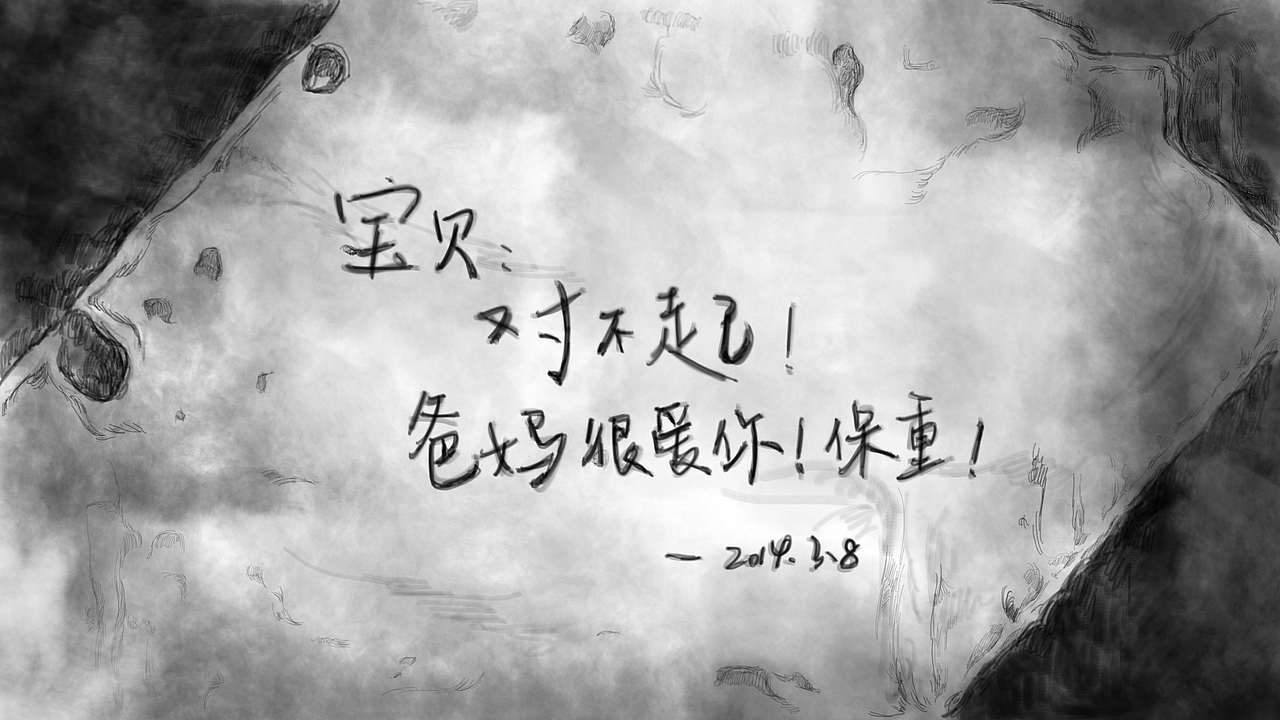 宝贝:
对不起!
爸妈很爱你!保重!
— 2014.3.8